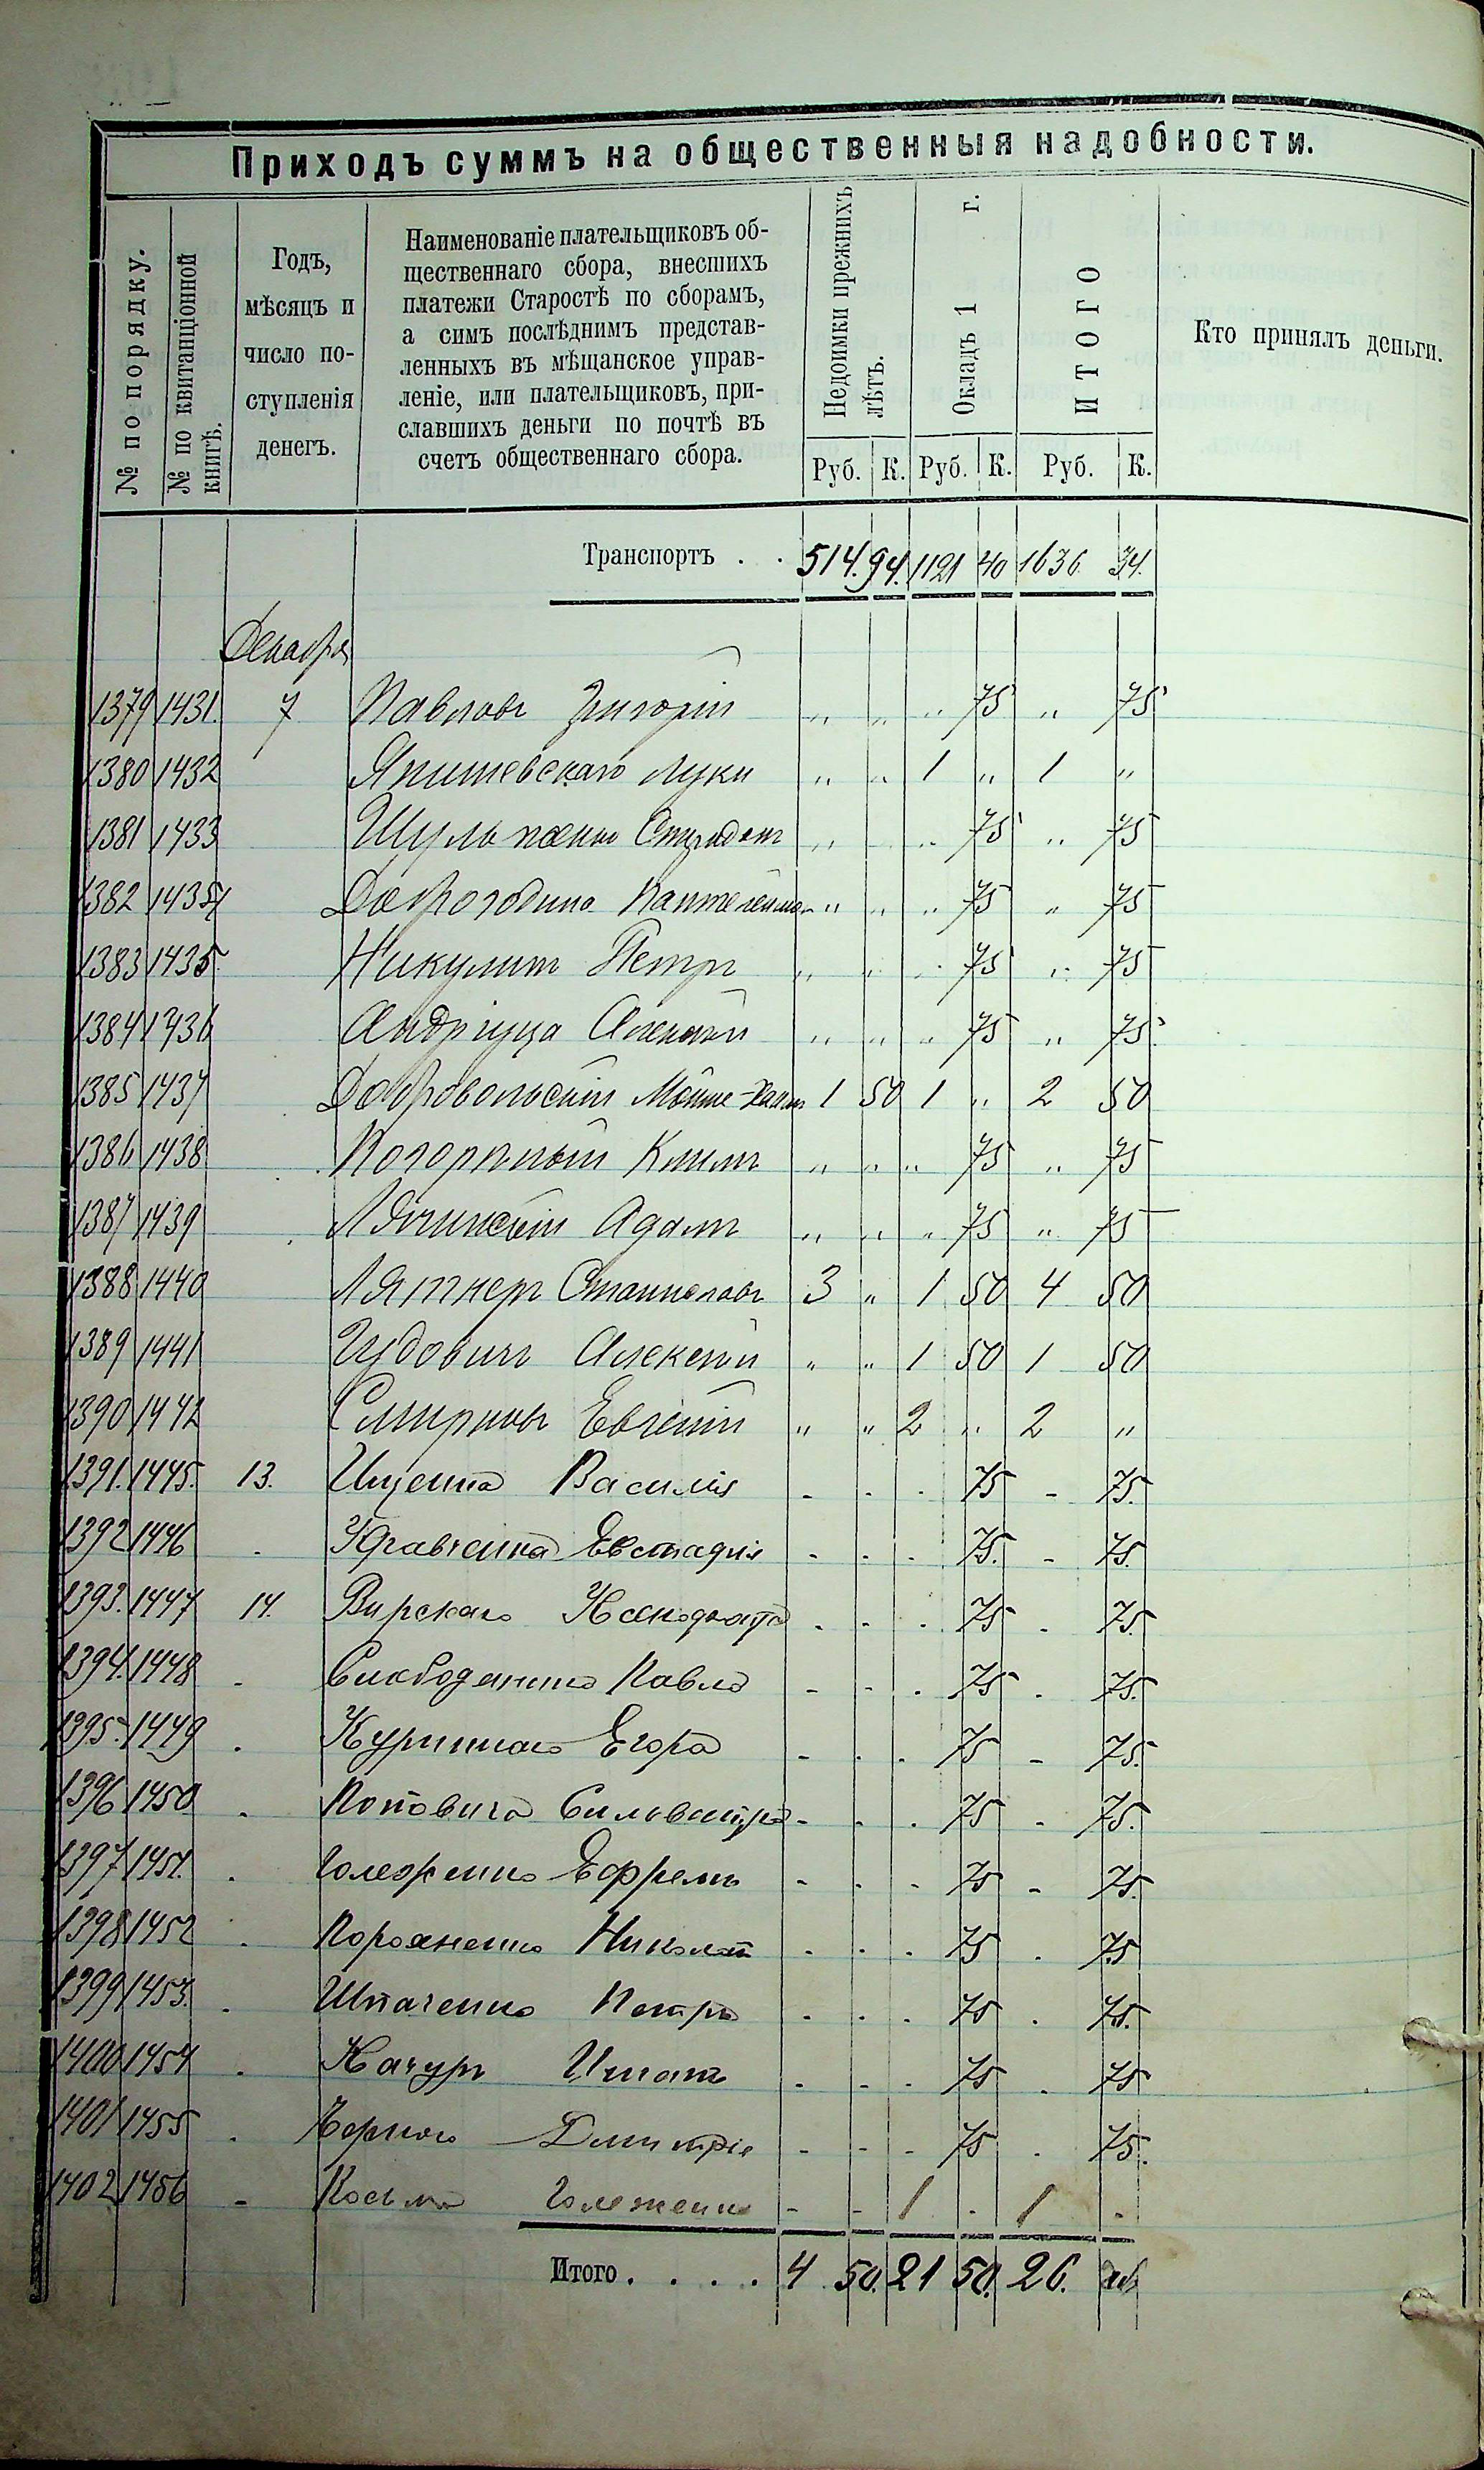 Приходъ суммъ на общественныя надобности.
№ по порядку.
№ по квитанціонной книгѣ.
Годъ,
мѣсяцъ и
число по-
ступленія
денегъ.
Наименованіе плательщиковъ об-
щественнаго сбора, внесшихъ
платежи Старостѣ по сборамъ,
а симъ послѣднимъ представ-
ленныхъ въ мѣщанское управ-
леніе, или плательщиковъ, при-
славшихъ деньги по почтѣ въ
счетъ общественнаго сбора.
Недоимки прежнихъ лѣтъ.
Окладъ 1 г.
ИТОГО
Кто принялъ деньги.
Руб. К. Руб. К. Руб. К.
Транспортъ . . 514. 94. 1121 40 1636. 34.
Декабря
1379 1431. 7 Павловъ Григорій " " " 75 " 75
1380 1432 Янишевскаго Луки " " 1 " 1 "
1381 1433 " " 75 " 75
1382 " " " 75 " 75
1383 1435. Никулинъ Петръ " " " 75 " 75
1384 1436 Андріуца Алексѣй " " " 75 " 75
1385 1437 Добровольскій 1 50 1 " 2 50
1386 1438 Климъ " " " 75 " 75
1387 1439 Адамъ " " " 75 " 75
1388 1440 Станиславъ 3 " 1 50 4 50
1389 1441 Чудовичъ Алексѣй " " 1 50 1 50
1390 1442 Смирновъ Евгеній " " 2 " 2 "
1391. 1445. 13. Ищенко Василія - - - 75 - 75.
1392 1446 - Кравченка - - - 75. - 75.
1393. 1447 14. Вирскаго - - - 75 - 75.
1394. 1448 - Павла - - - 75 - 75.
1395. 1449 - Егора - - - 75 - 75.
1396 1450 - Поповича Сильвестра - - - 75 - 75.
1397 1451. - Ефремъ - - - 75 - 75.
1398 1452 - Николай - - - 75 - 75
1399 1453. - Шпаченко Петръ - - - 75 - 75.
1400 1454 - Качуръ Игнатъ - - - 75 - 75
1401 1455 - Чернаго Дмитрія - - - 75 - 75.
1402 1456 - Косьма - - 1 - 1 -
Итого . . . . 4 50. 21 50. 26.